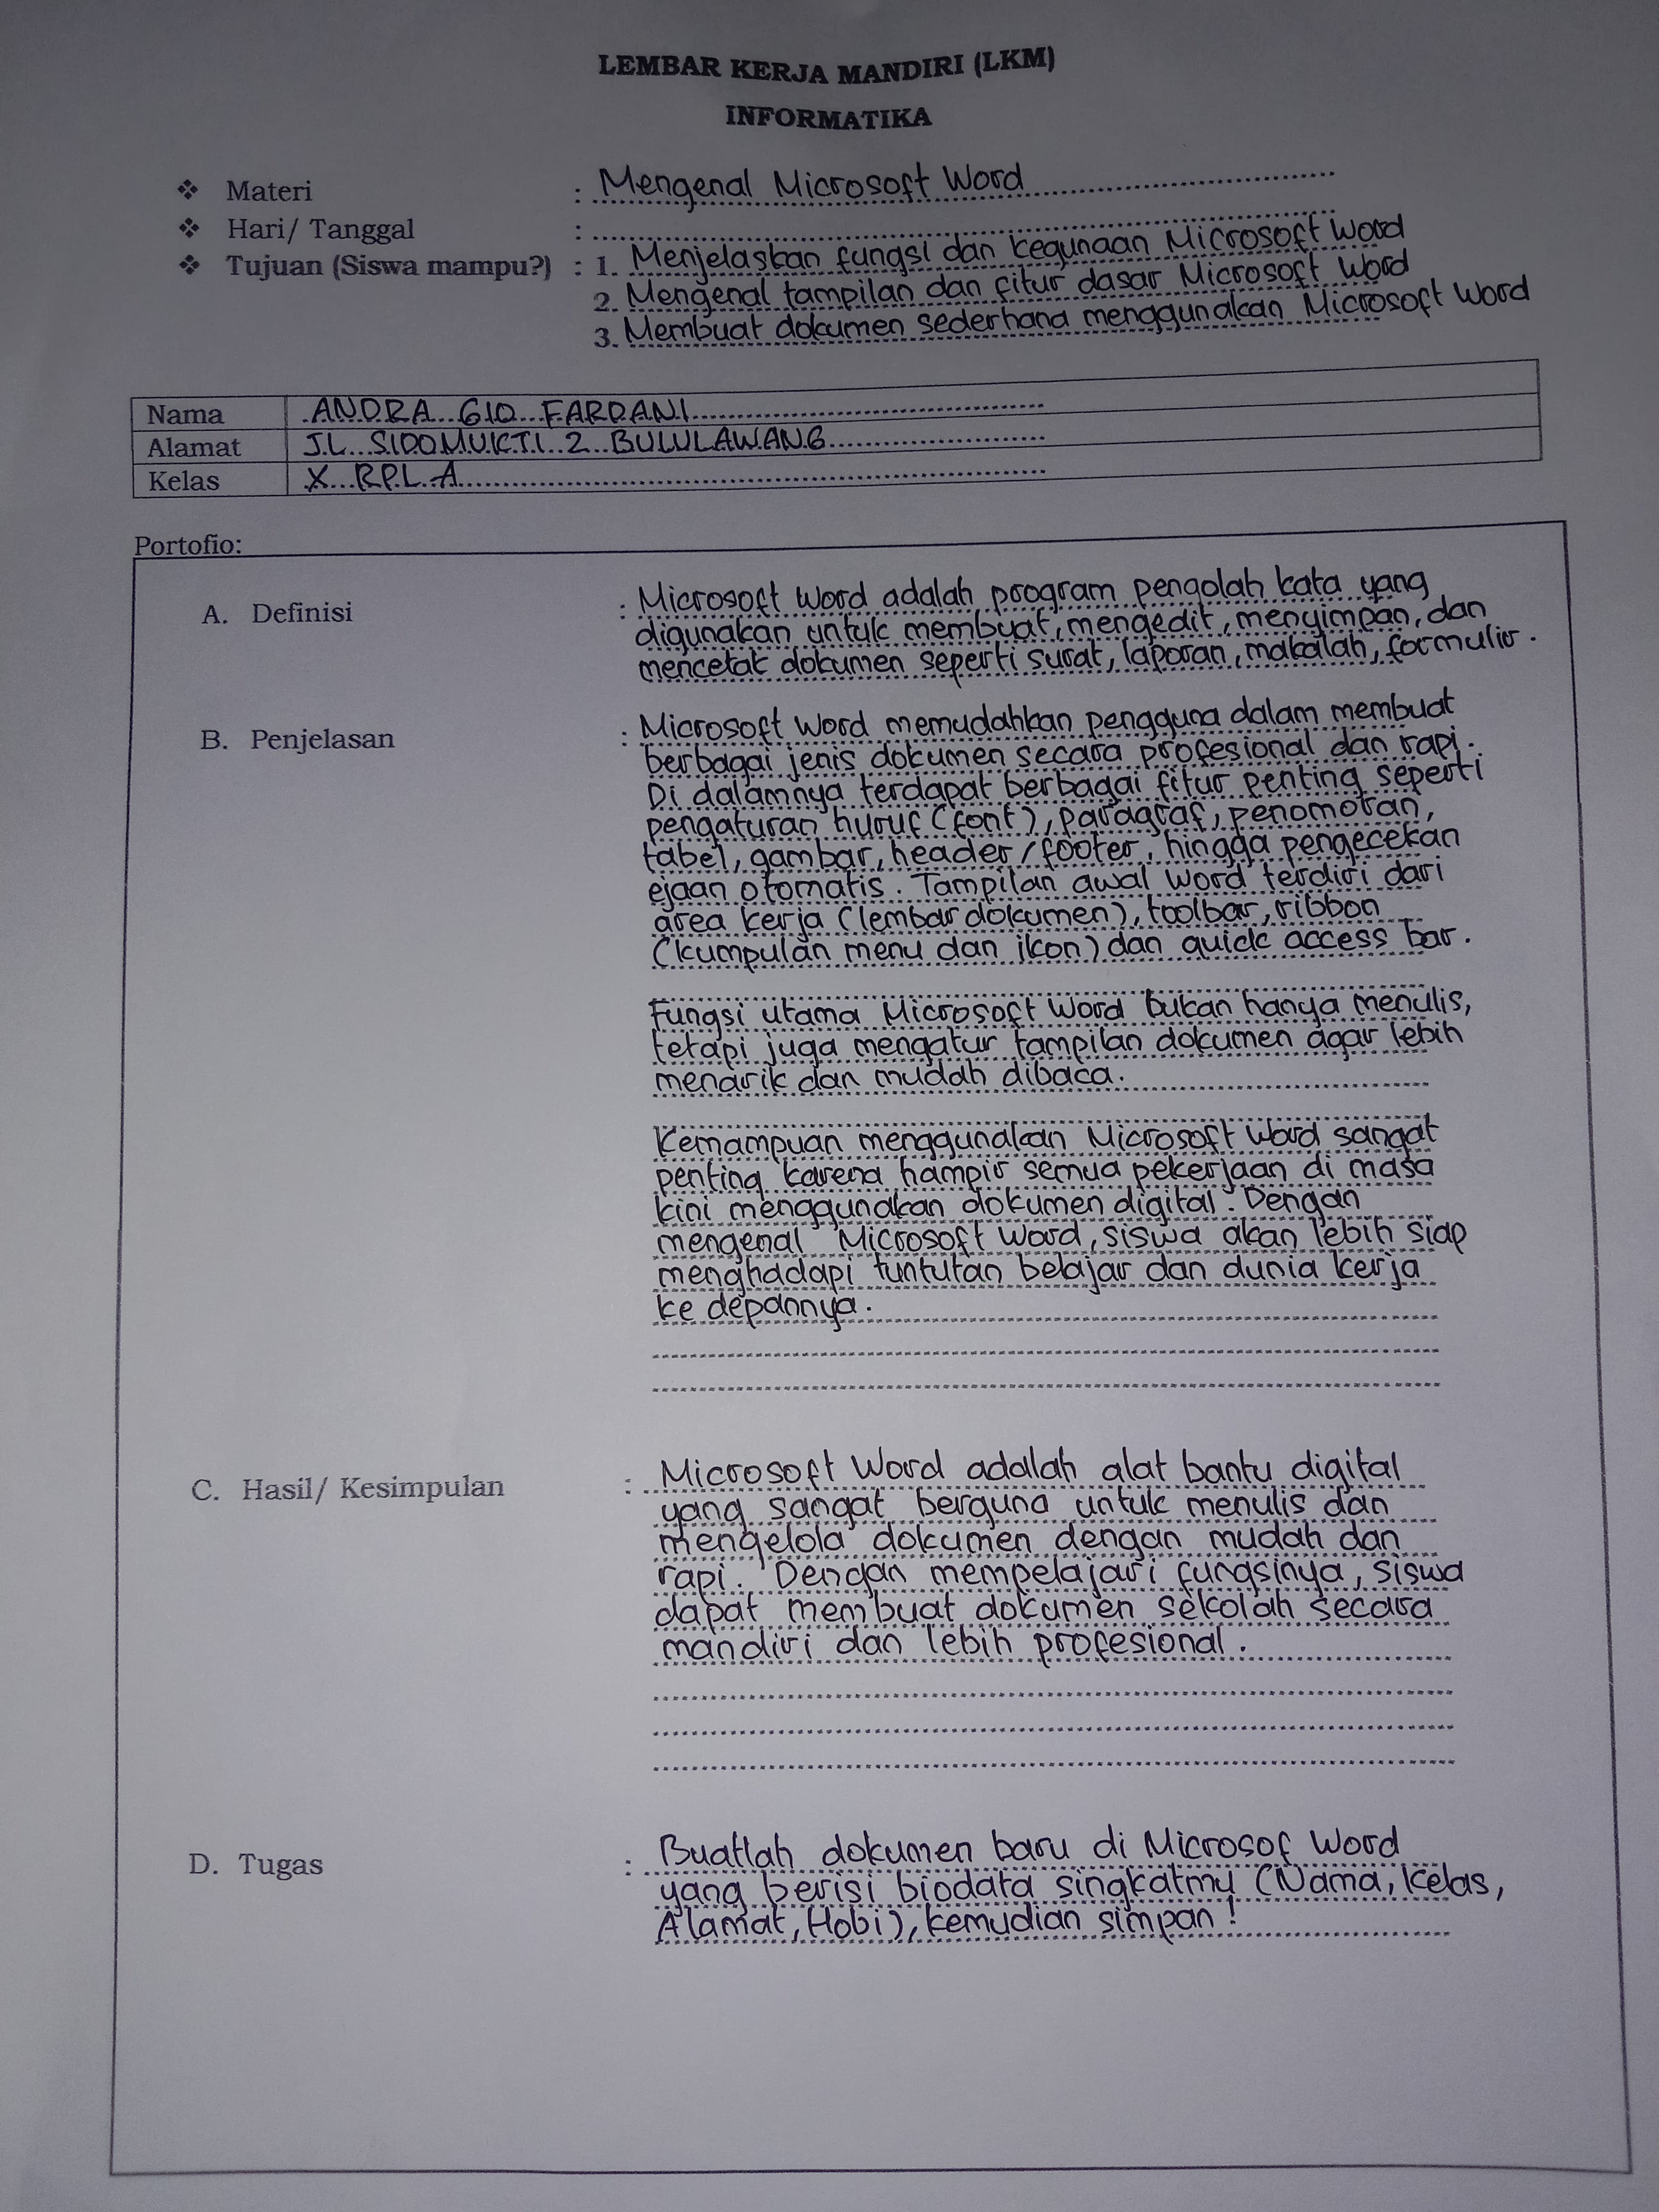 LEMBAR KERJA MANDIRI (LKM)
INFORMATIKA
❖ Materi : Mengenal Microsoft Word
❖ Hari/ Tanggal :
❖ Tujuan (Siswa mampu?) : 1. Menjelaskan fungsi dan kegunaan Microsoft Word
2. Mengenal tampilan dan fitur dasar Microsoft Word
3. Membuat dokumen sederhana menggunakan Microsoft Word
Nama ANDRA GIO FARDANI
Alamat JL. SIDOMUKTI 2 BULULAWANG
Kelas X RPL A
Portofio:
A. Definisi : Microsoft Word adalah program pengolah kata yang
digunakan untuk membuat, mengedit, menyimpan, dan
mencetak dokumen seperti surat, laporan, makalah, formulir.
B. Penjelasan : Microsoft Word memudahkan pengguna dalam membuat
berbagai jenis dokumen secara profesional dan rapi.
Di dalamnya terdapat berbagai fitur penting seperti
pengaturan huruf (font), paragraf, penomoran,
tabel, gambar, header/footer, hingga pengecekan
ejaan otomatis. Tampilan awal word terdiri dari
area kerja (lembar dokumen), toolbar, ribbon
(kumpulan menu dan ikon) dan quick access bar.
Fungsi utama Microsoft Word bukan hanya menulis,
tetapi juga mengatur tampilan dokumen agar lebih
menarik dan mudah dibaca.
Kemampuan menggunakan Microsoft Word sangat
penting karena hampir semua pekerjaan di masa
kini menggunakan dokumen digital. Dengan
mengenal Microsoft Word, siswa akan lebih siap
menghadapi tuntutan belajar dan dunia kerja
ke depannya.
C. Hasil/ Kesimpulan : Microsoft Word adalah alat bantu digital
yang sangat berguna untuk menulis dan
mengelola dokumen dengan mudah dan
rapi. Dengan mempelajari fungsinya, siswa
dapat membuat dokumen sekolah secara
mandiri dan lebih profesional.
D. Tugas : Buatlah dokumen baru di Microsof Word
yang berisi biodata singkatmu (Nama, Kelas,
Alamat, Hobi), kemudian simpan!